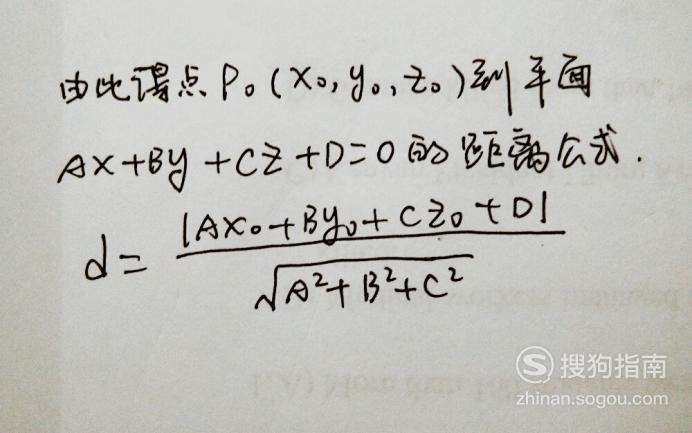 由此得点P₀(x₀,y₀,z₀)到平面
Ax+By+Cz+D=0的距离公式.
d=|Ax₀+By₀+Cz₀+D|
√A²+B²+C²
搜狗指南
zhinan.sogou.com